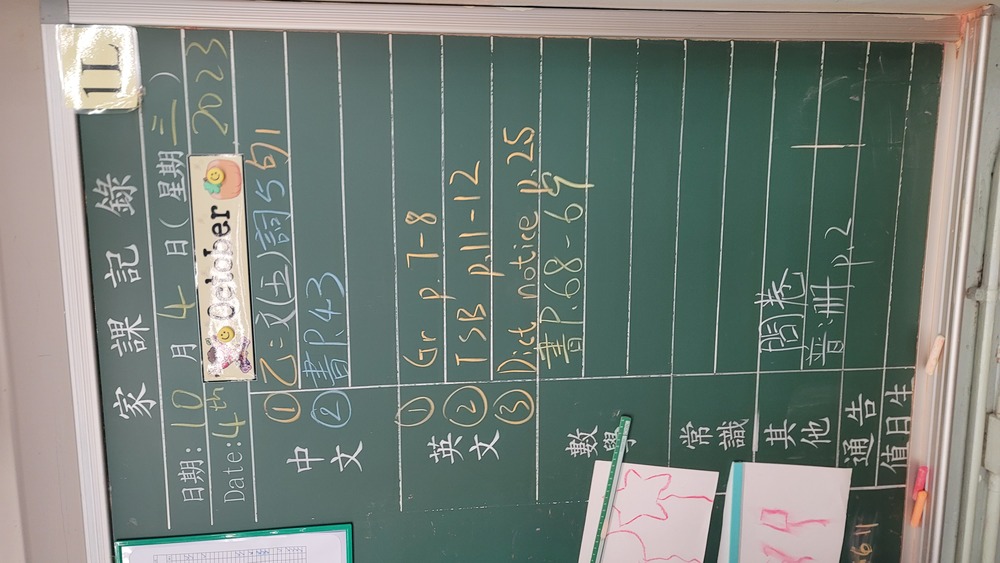 1L
家課記錄
日期: 10月4日(星期三)
Date: 4th October 2023
中文
① 乙:文(五)詞5句1
② 書P.43
英文
① Gr p. 7-8
② TSB p.11-12
③ Dict notice p.25
數學
書P.68-69
常識
其他
問卷
普:冊 P.2
通告
值日生